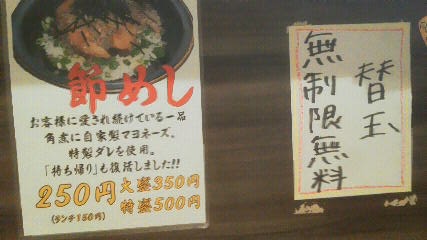 節めし
お客様に愛され続けている一品
角煮に自家製マヨネーズ。
特製ダレを使用。
「持ち帰り」も復活しました!!
250円 大盛350円
特盛500円
(ランチ150円)
替玉
無制限無料